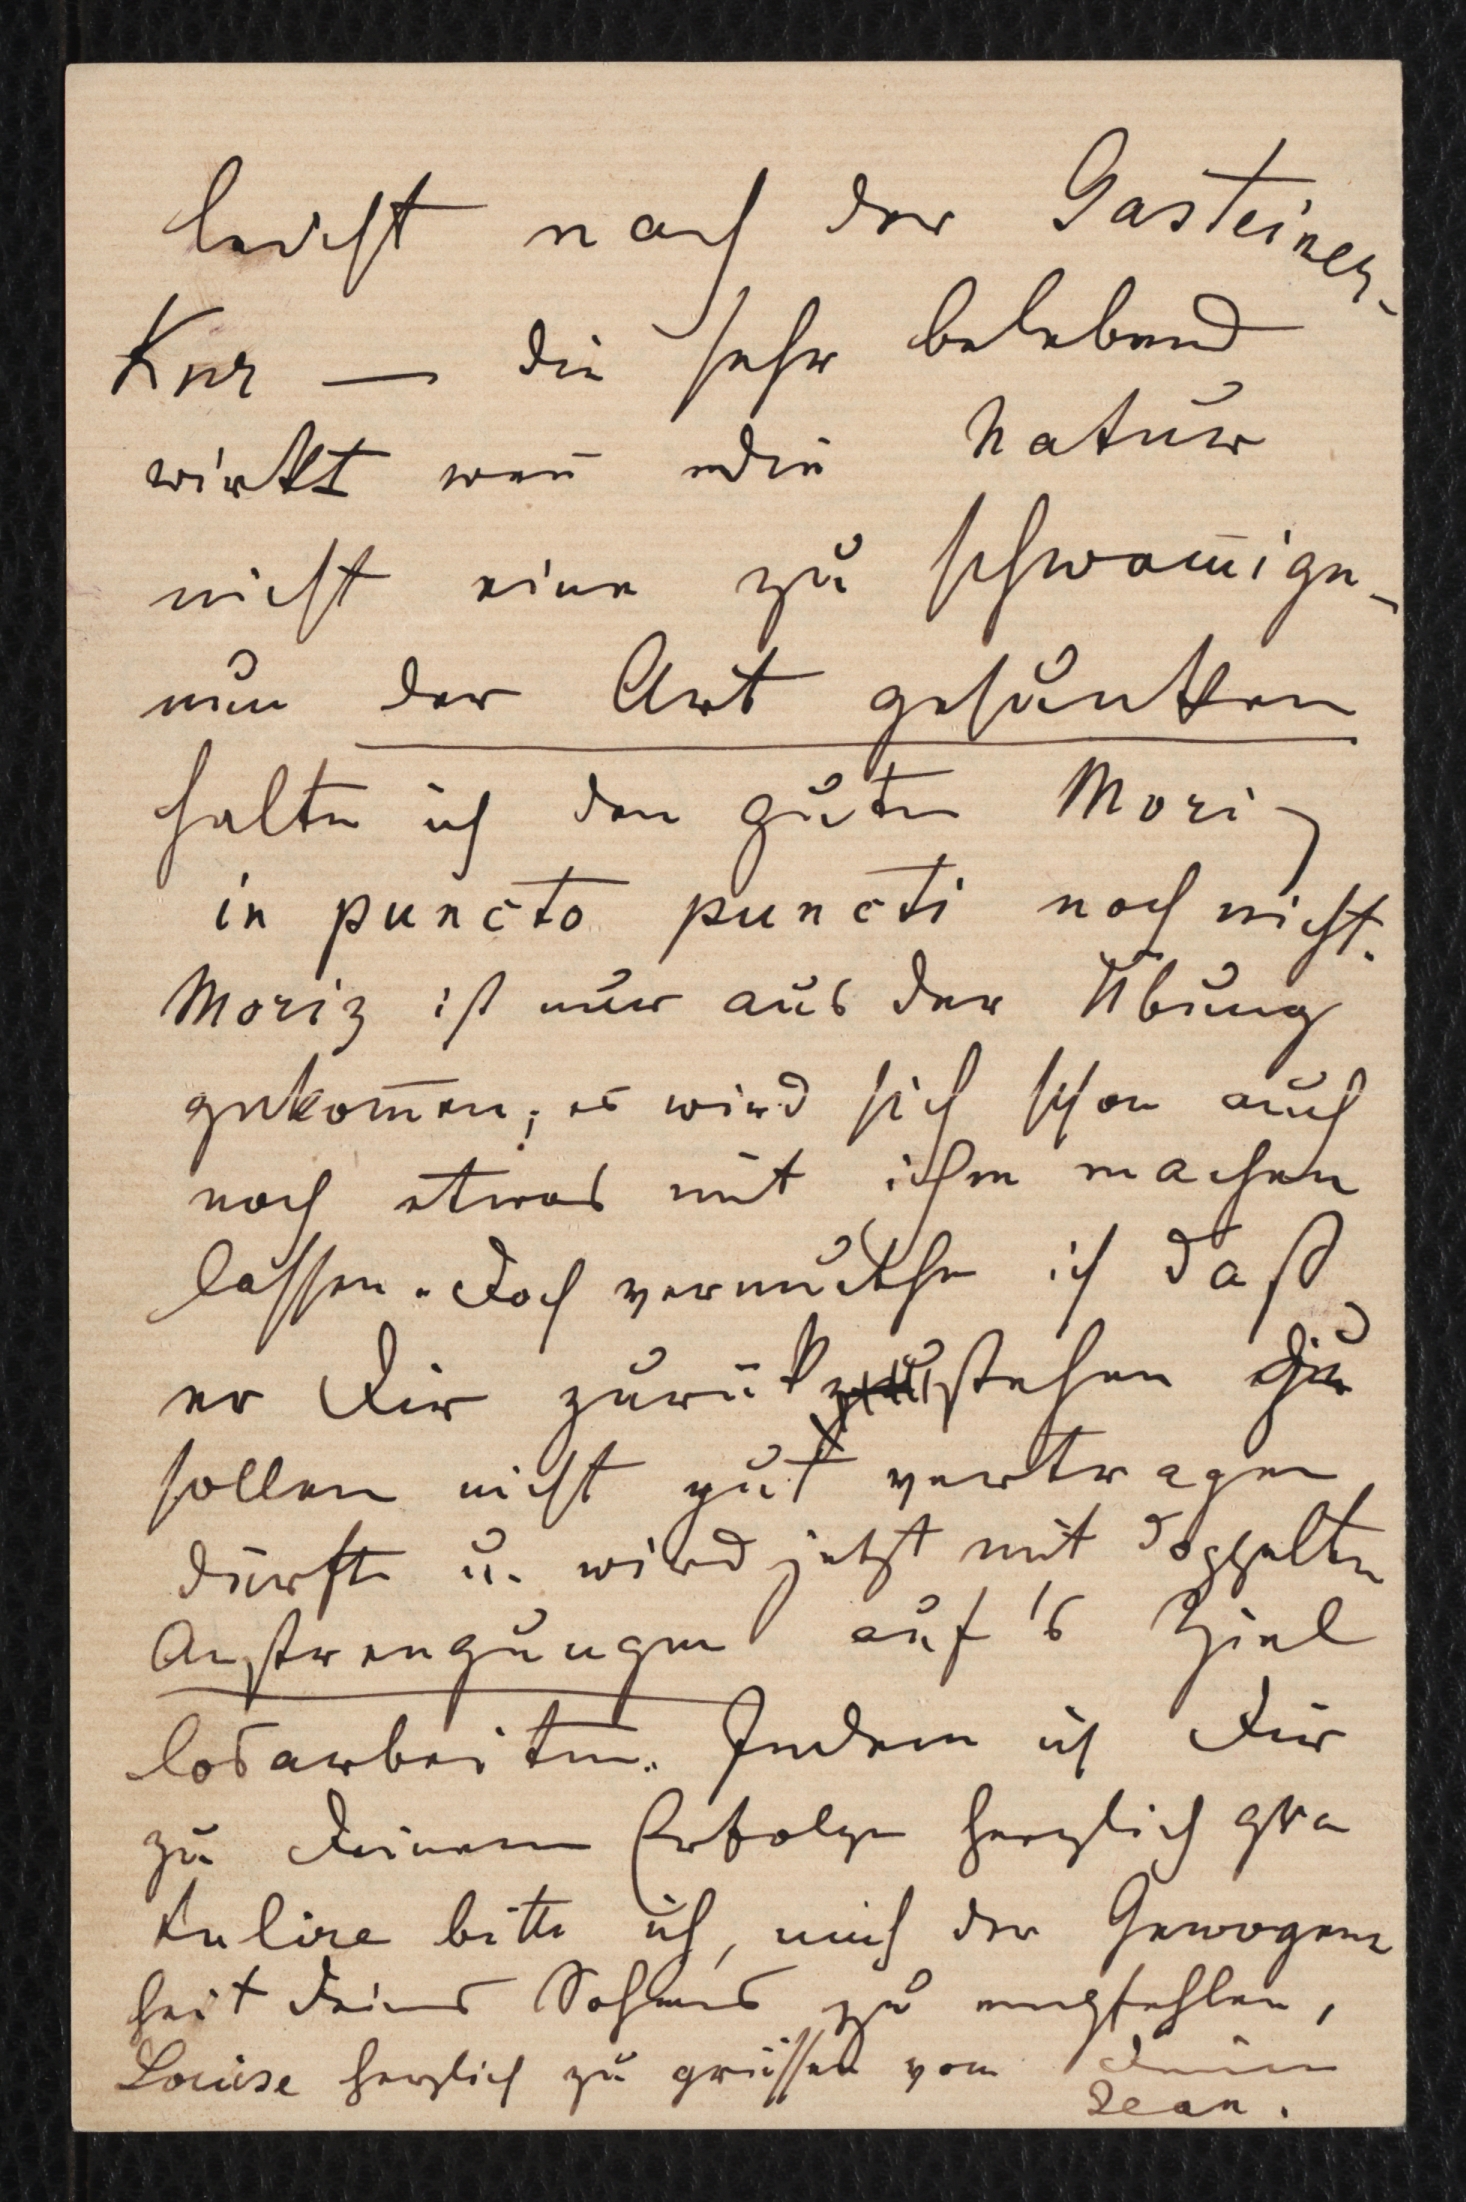 leicht nach der Gasteiner-
Kur — die sehr belebend
wirkt wen̄ die Natur
nicht eine zu schwam̄ige-
nun der Art gesunken
halte ich den guten Moriz
in puncto puncti noch nicht.
Moriz ist nur aus der Übung
gekom̄en; es wird sich schon auch
noch etwas mit ihm machen
lassen. Doch vermuthe ich daß
er Dir zurük stehen zu
sollen nicht gut vertragen
dürfte u. wird jetzt mit doppelten
Anstrengungen auf's Ziel
losarbeiten. Indem ich Dir
zu Deinem Erfolge herzlich gra
tulire bitte ich, mich der Gewogen
heit Deines Sohnes zu empfehlen,
Louise herzlich zu grüssen von Deinem
Jean.